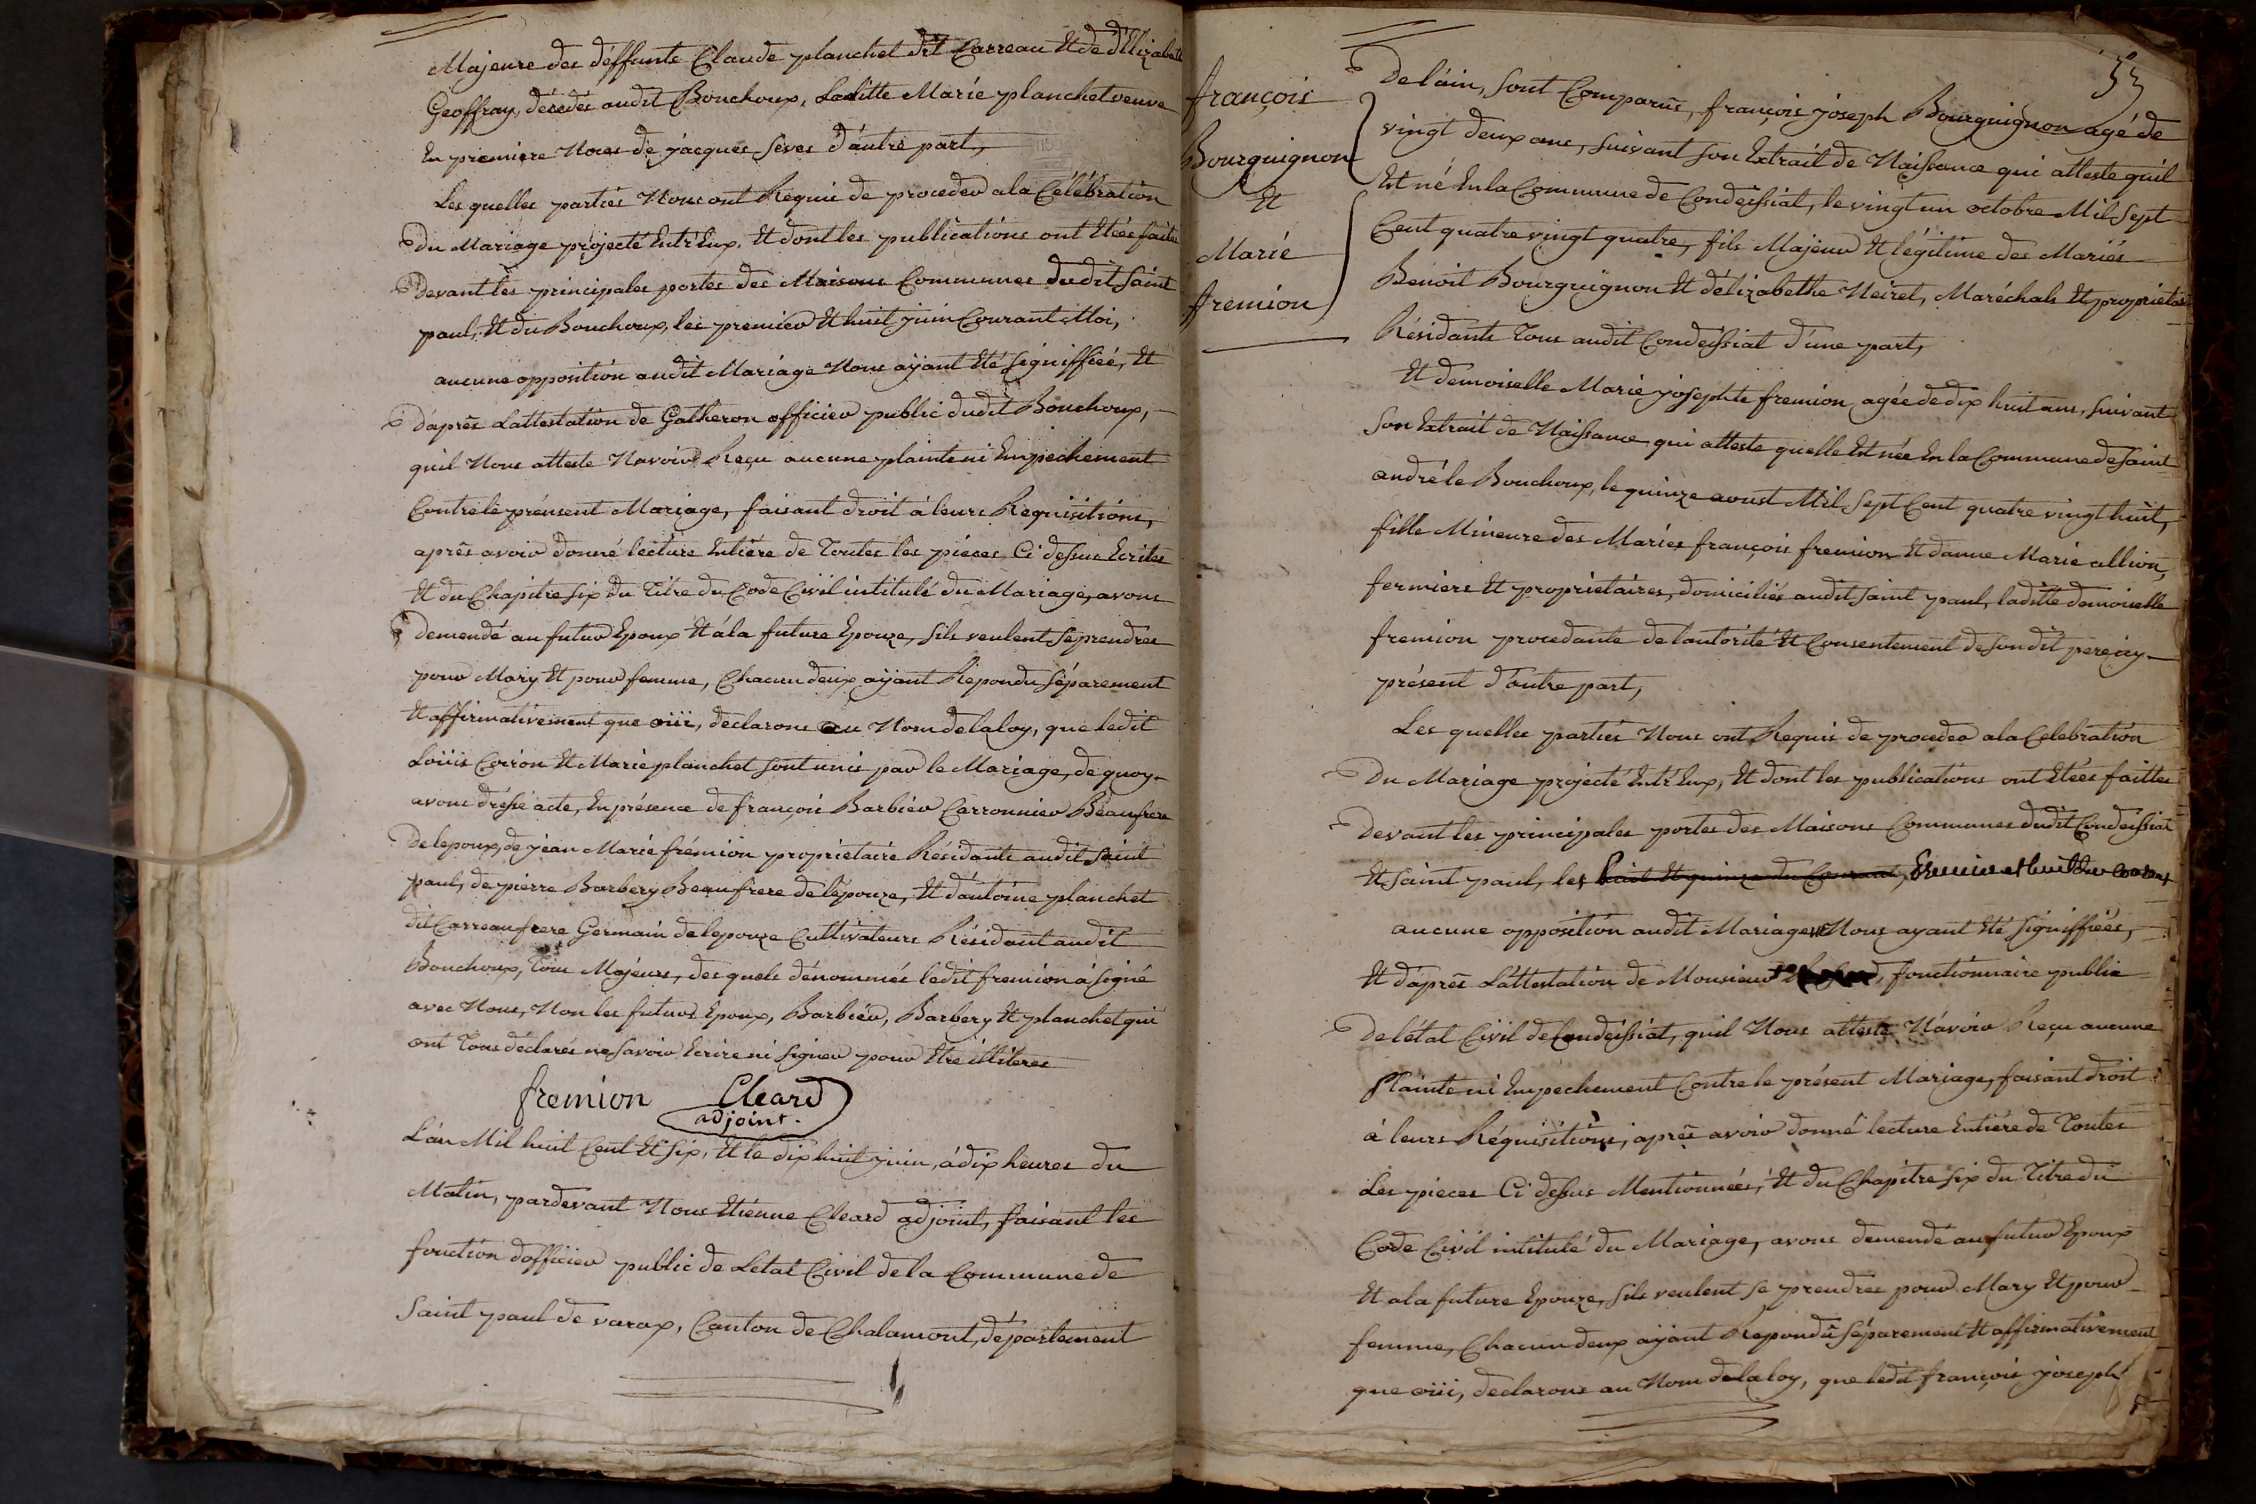 Majeure des déffunts Claude planchet dit Carreau Et de d'Elizabeth
Geoffray, décédés audit Bouchoux, Laditte Marie planchet veuve
En premiere Noces de jacques Seves d'autre part,
Les quelles parties Nous ont Requis de proceder a la Célébration
Du Mariage projecté Entr'Eux, Et dont les publications ont Etées faites
Devant les principales portes des Maisons Communes dudit Saint
paul, Et du Bouchoux, les premier Et huit juin Courant Moi,
aucune opposition audit Mariage Nous ayant Eté signiffiée, Et
D'après L'attestation de Gatheron officier public dudit Bouchoux,
qu'il Nous atteste N'avoir Reçu aucune plainte ni Empechement
Contre le présent Mariage, faisant droit à leurs Requisitions,
après avoir donné lecture Entiére de Toutes les piéces Ci dessus Ecrites
Et du Chapitre six du Titre du Code Civil intitulé du Mariage, avons
Demendé au futur Epoux Et á la future Epouze, s'ils veulent se prendres
pour Mary Et pour femme, Chacun deux ayant Repondu séparement
Et affirmativement que oüi, declarons au Nom de la loy, que ledit
Loüis Coiron Et Marie planchet sont unis par le Mariage, de quoy
avons dréssé acte, En présence de françois Barbier Carronnier Beaufrere
De lepoux, de jéan Marie frémion propriétaire Résidants audit Saint
paul, de pierre Barbery Beaufrere de l'epouze, Et d'antoine planchet
dit Carreau frere Germain de lepouze Cultivateurs Résidant audit
Bouchoux, Tous Majeurs, des quels dénommés ledit fremion à signé
avec Nous, Non les futurs Epoux, Barbier, Barbery Et planchet qui
ont Tous déclarés ne savoir Ecrire ni signer pour Etre illiteres
fremion Cleard
adjoint.
L'an Mil huit Cent Et six, Et le dix huit juin, à dix heures du
Matin, pardevant Nous Etienne Cleard adjoint, faisant les
fonction d'officier public de Letat Civil de la Commune de
Saint paul de varax, Canton de Chalamont, département
françois
Bourguignon
Et
Marie
fremion
53
De l'ain, sont Comparus, françois joseph Bourguignon agé de
vingt deux ans, suivant son Extrait de Naissance qui atteste quil
Est né En la Commune de Condeissiat, le vingt un octobre Mil sept
Cent quatre vingt quatre, fils Majeur Et légitime des Mariés
Benoit Bourguignon Et d'élizabethe Neiret, Maréchals Et proprietaires
Résidants Tous audit Condeissiat d'une part,
Et demoiselle Marie josephte fremion agée de dix huit ans, suivant
son Extrait de Naissance qui atteste quelle Est née En la Commune de Saint
andré le Bouchoux, le quinze aoust Mil sept Cent quatre vingt huit,
fille Mineure des Mariés françois fremion Et danne Marie allion,
fermiers Et proprietaires, domiciliés audit Saint paul, laditte demoiselle
fremion procedante de l'autorité Et Consentement de sondit pere icy
présent d'autre part,
Les quelles parties Nous ont Requis de proceder a la Celebration
Du Mariage projecté Entr'Eux, Et dont les publications ont Etées faittes
Devant les principales portes des Maisons Communes dudit Condeissiat
Et Saint paul, les huit Et quinze du Courant, premier et huit du courant
aucune opposition audit Mariage Nous ayant Eté signiffiées,
Et d'après L'attestation de Monsieur, fonctionnaire public
De létat Civil de Condeissiat, quil Nous atteste N'avoir Reçu aucune
Plainte ni Empechement Contre le présent Mariage, faisant droit
à leurs Réquisitions, après avoir donné lecture Entiére de Toutes
Les pieces Ci dessus Mentionnées, Et du Chapitre six du Titre du
Code Civil intitulé du Mariage, avons demendé au futur Epoux
Et a la future Epouze, s'ils veulent se prendres pour Mary Et pour
femme, Chacun deux ayant Repondu séparement Et affirmativement
que oüi, declarons au Nom de la loy, que ledit françois joseph